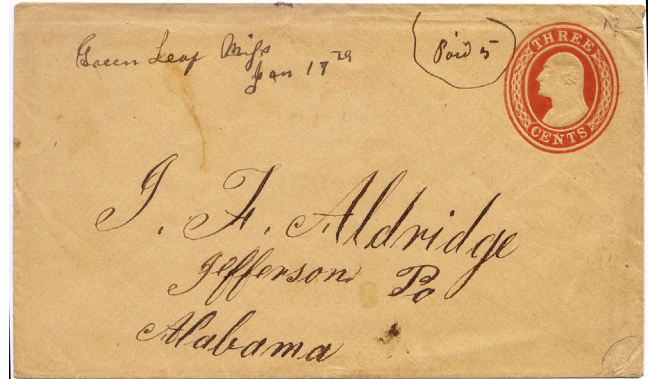 Green Leaf Miss
Jan 17
Paid 5
THREE
CENTS
J. F. Aldridge
Jefferson Po
Alabama